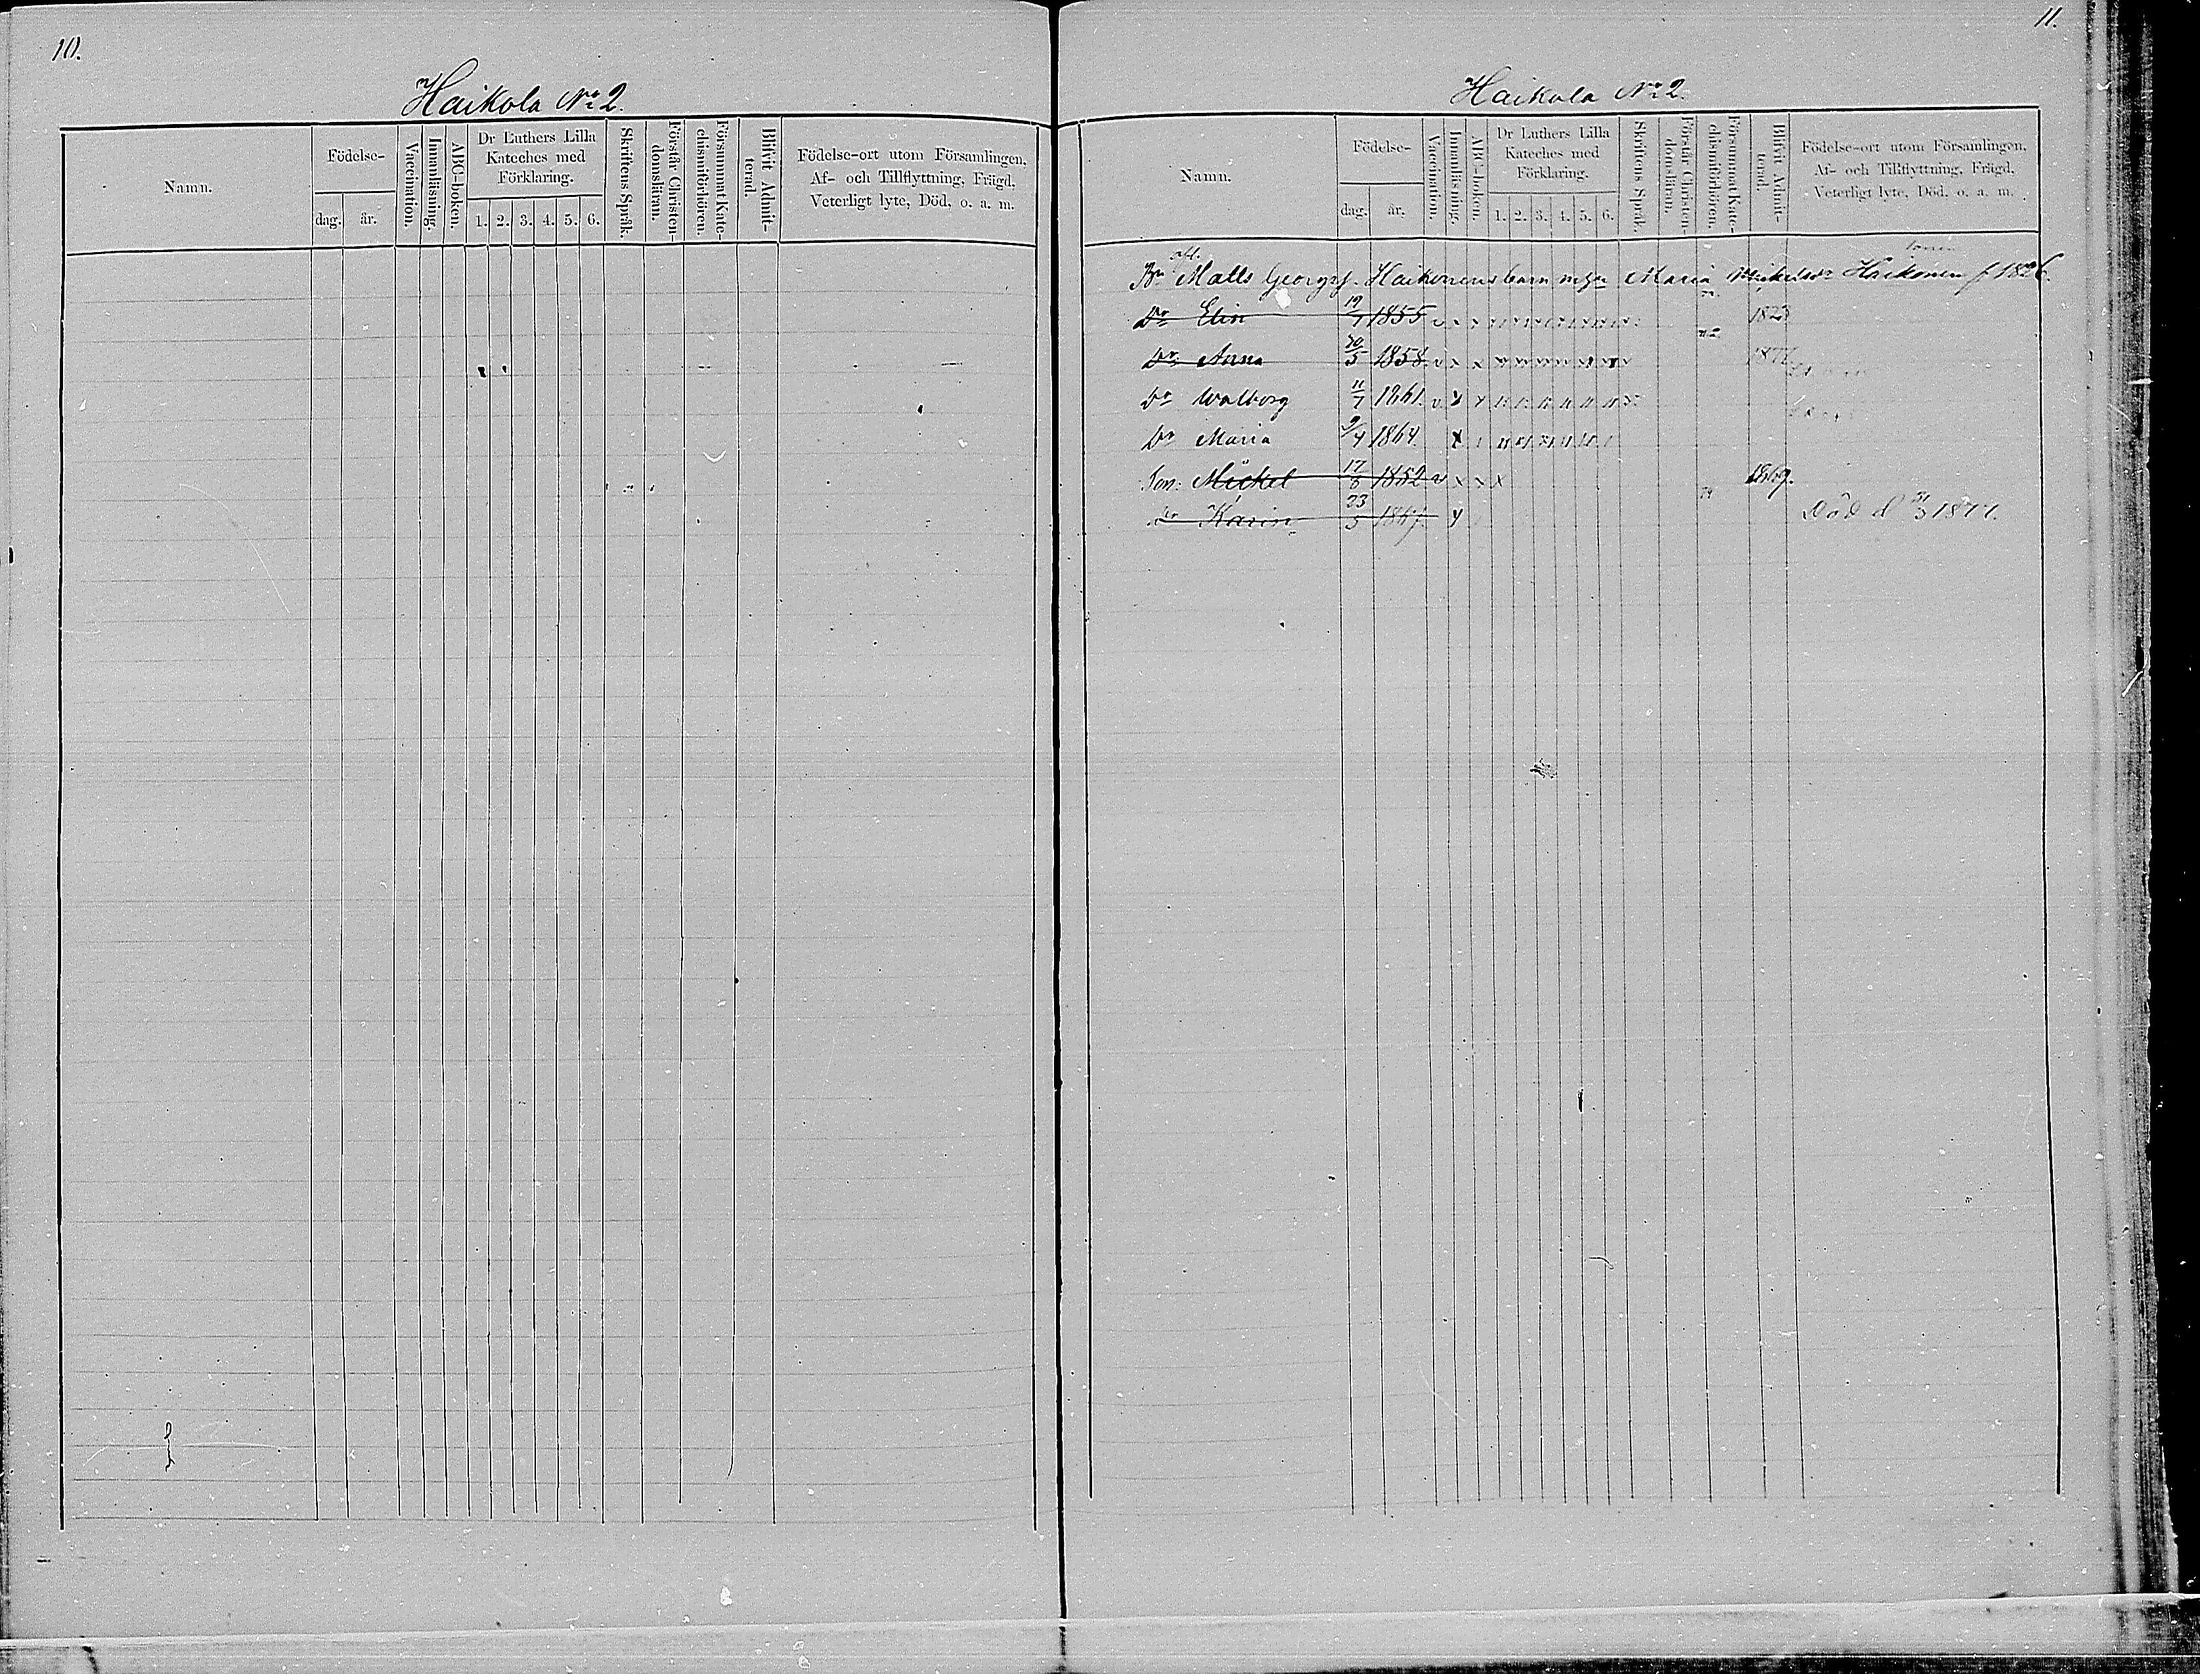 10.
Haikola No 2.
Namn.
Födelse-
dag.
år.
Vaccination.
Innanläsning.
ABC-boken.
Dr Luthers Lilla
Kateches med
Förklaring.
1. 2. 3. 4. 5. 6.
Skriftens Språk.
Förstår Christen-
domsläran.
Försummat Kate-
chismiförhören.
Blifvit Admit-
terad.
Födelse-ort utom Församlingen,
Af- och Tillflyttning, Frägd,
Veterligt lyte, Död, o. a. m.
11.
Haikola No 2.
Namn.
Födelse-
dag.
år.
Vaccination.
Innanläsning.
ABC-boken.
Dr Luthers Lilla
Kateches med
Förklaring.
1. 2. 3. 4. 5. 6.
Skriftens Språk.
Förstår Christen-
domsläran.
Försummat Kate-
chismiförhören.
Blifvit Admit-
terad.
Födelse-ort utom Församlingen,
Af- och Tillflyttning, Frägd,
Veterligt lyte, Död, o. a. m.
Bn Matts Georgsf. Haikonens barn m. Maria Mickelsdr Haikonen f. 1826.
Dr Elin 19/7 1855 v x x
Dr Anna 30/5 1858 v x x
Dr Walborg 11/7 1861. v x x
Dr Maria 9/4 1864. x
Son: Mickel 17/8 1852 v x x x 1869.
Dr Karin 23/5 1867. x Död d 1871.